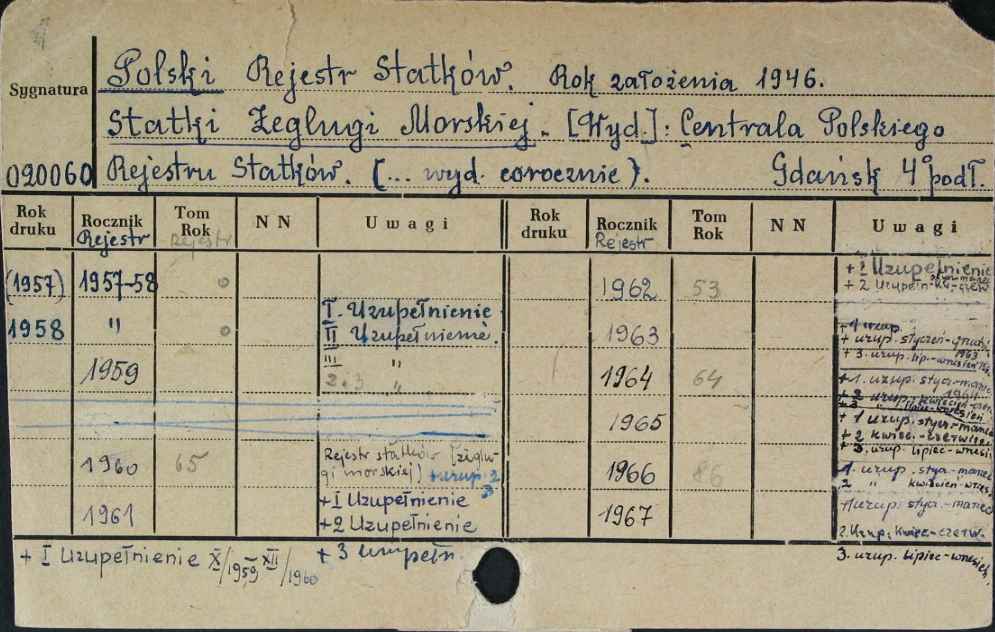 Polski Rejestr Statków. Rok założenia 1946.
Sygnatura
Statki Żeglugi Morskiej. [Wyd.]: Centrala Polskiego
020060 Rejestru Statków. (... wyd. corocznie). Gdańsk 4° podł.
Rok druku Rocznik Rejestr Tom Rok Rejestr NN Uwagi Rok druku Rocznik Rejestr Tom Rok NN Uwagi
(1957) 1957-58 o
1958 " o
I. Uzupełnienie
II Uzupełnienie.
III "
2. 3 "
1959
1960 65 Rejestr statków (żeglu-
gi morskiej) + uzup. 2,
3
1961 + I Uzupełnienie
+ 2 Uzupełnienie
1962 53 + I Uzupełnienie
+ 2 Uzupełn.
1963 + 1 uzup.
+ uzup. styczeń-
1963
+ 3. uzup. lip.-wrzesień
1964 64 + 1. uzup. stycz.-marzec
1964
+ 2 uzup. kwiecień-
+ 3 " lipiec-wrzesień
1965 + 1 uzup. stycz.-marzec
+ 2 kwiec.-czerwiec
+ 3. uzup. lipiec-wrzesi
1966 86 1. uzup. stycz.-marzec
2 " kwiecień-wrzes.
1967 1 uzup. stycz.-marzec
2. Uzup. Kwiec-czerw.
3. uzup. lipiec-wrzesień.
+ I Uzupełnienie X/1959 XII/1960 + 3 uzupełn.